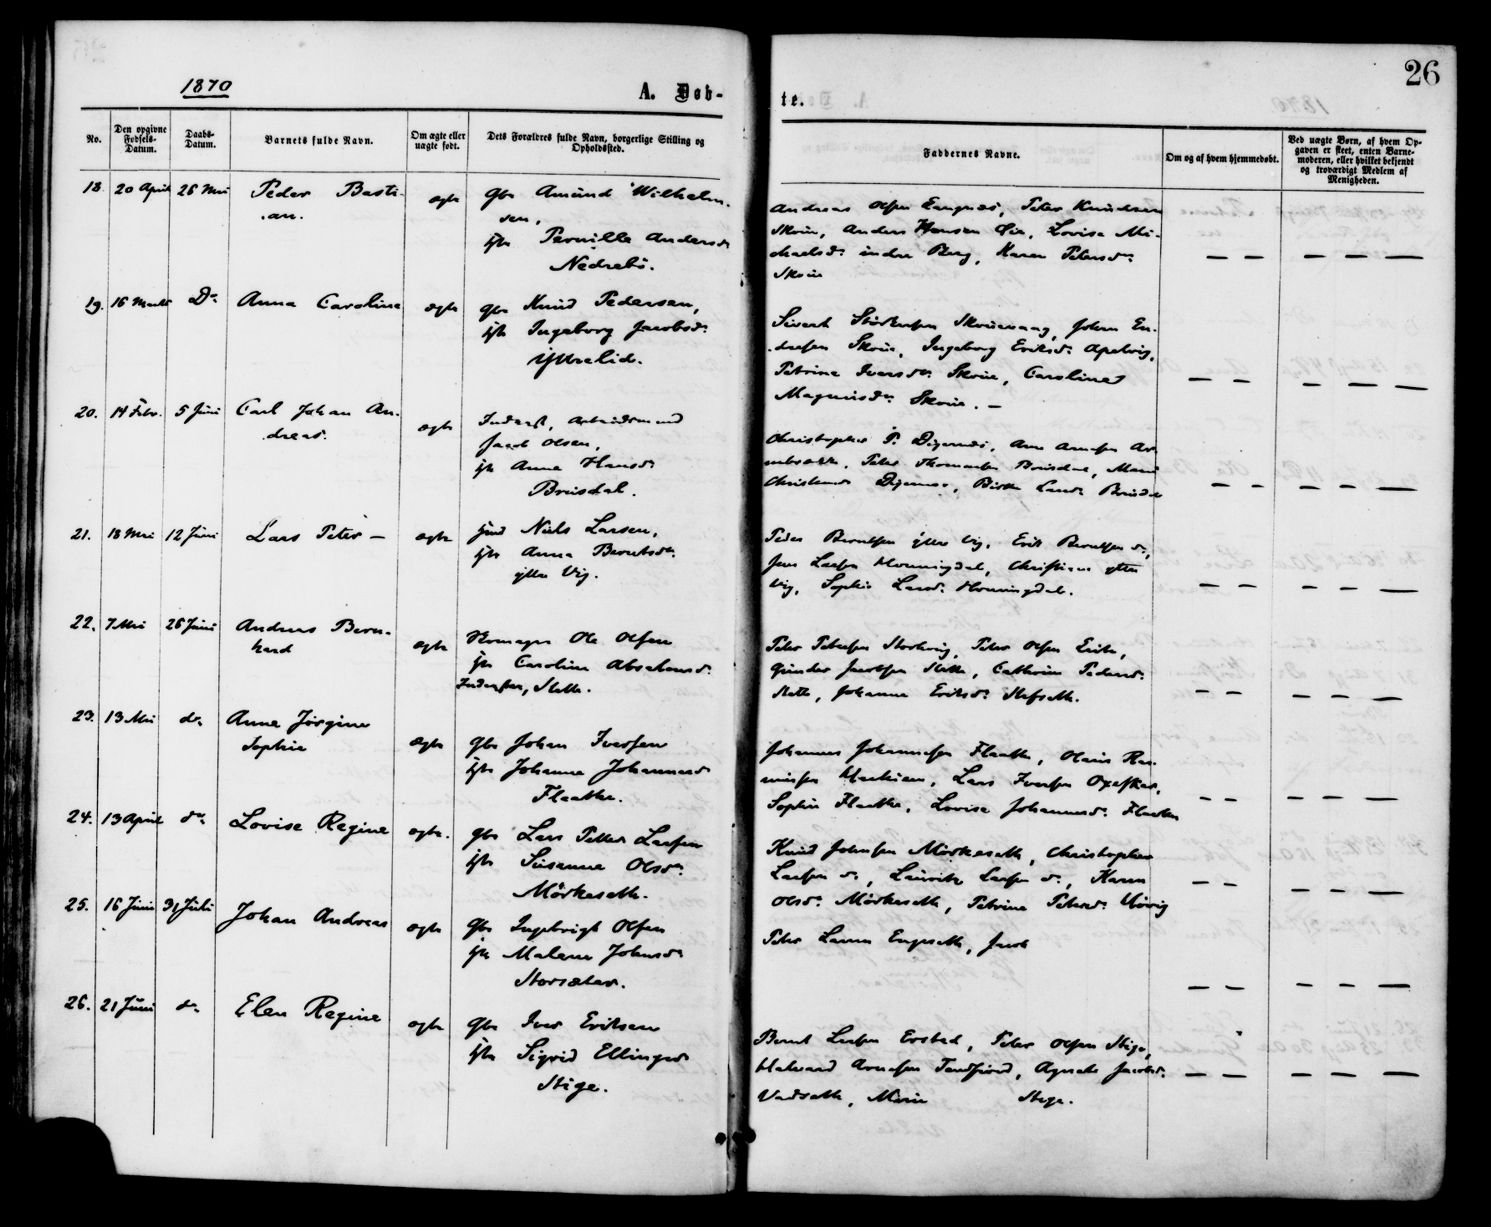 26
1870
A. Døb-
te.
No.
Den opgivne Fødsels-Datum.
Daabs-Datum.
Barnets fulde Navn.
Om ægte eller uægte født.
Dets Forældres fulde Navn, borgerlige Stilling og Opholdssted.
Faddernes Navne.
Om og af hvem hjemmedøbt.
Ved uægte Børn, af hvem Op-
gaven er skeet, enten Barne-
moderen, eller hvilket bekjendt
og troværdigt Medlem af
Menigheden.
18. 20 April 26 Mai Peder Basti- ægte Gbr Amund Wilhelm-
an. sen,
Pernille Andersdr
Nedrebö.
Andreas Olsen, Peter Knudsen
Skoue, Anders Hansen, Lovise Mi-
chaelsdr indre Berg, Karen Petersdr
Skoue
— — — — —
19. 16 Marts Do Anna Caroline ægte Gbr Knud Pedersen,
Ingeborg Jacobsdr
Yttrelid.
Sivert Skouevaag, Johan En-
dresen Skoue, Ingeborg Eriksdr Apelvig,
Petrine Iversdr Skoue, Caroline
Magnusdr Skoue. —
— — — — —
20. 14 Febr. 5 Juni Carl Johan An- ægte Inderst, Arbeidsmand
dreas. Jacob Olsen,
Anna Hansdr
Brusdal.
Christopher P. Digernes, Arne Arnesen
Peter Thomassen Brusdal,
Digernes, Larsdr Brusdal
— — — — —
21. 18 Mai 12 Juni Lars Peter — ægte Niels Larsen,
Anna Berntsdr
ytre Vig.
Peder Berntsen ytre Vig, Erik Berntsen do,
Jens Larsen Honningdal, Christian ytre
Vig, Sophie Larsdr Honningdal.
— — — — —
22. 7 Mai 26 Juni Andreas Bern- ægte Skomager Ole Olsen
hard Caroline Absalonsdr
Inderster, Slette.
Peter Petersen, Peter Olsen
Gunder Jacobsen Slette, Cathrine Pedersdr
Slette, Johanne Eriksdr
— — — — —
23. 13 Mai do Anne Jørgine ægte Gbr Johan Iversen
Sophie Johanne Johannesdr
Flaathe.
Johannes Johannesen Flaathe, Olaus Ras-
mussen, Lars Iversen
Sophie Flaathe, Lovise Johannesdr Flaathe
— — — — —
24. 13 April do Lovise Regine ægte. Gbr Lars Petter Larsen
Susanne Olsdr
Mörkeseth.
Knud Johnsen Mörkeseth, Christopher
Larsen do, Lauritz Larsen do, Karen
Olsdr Mörkeseth, Petrine Petersdr
— — — — —
25. 16 Juni 31 Juli Johan Andreas ægte Gbr Ingebrigt Olsen
Malene Johnsdr
Storsæter.
Peter Larsen Engeseth, Jacob
— — — — —
26. 21 Juni do Elen Regine ægte Gbr Iver Eriksen
Sigrid Ellingsdr
Stige.
Bernt Larsen, Peter Olsen Stige,
Halvard Arnesen Tenfjord, Agnethe Jacobsdr
Vadseth, Marie Stige.
— — — — —